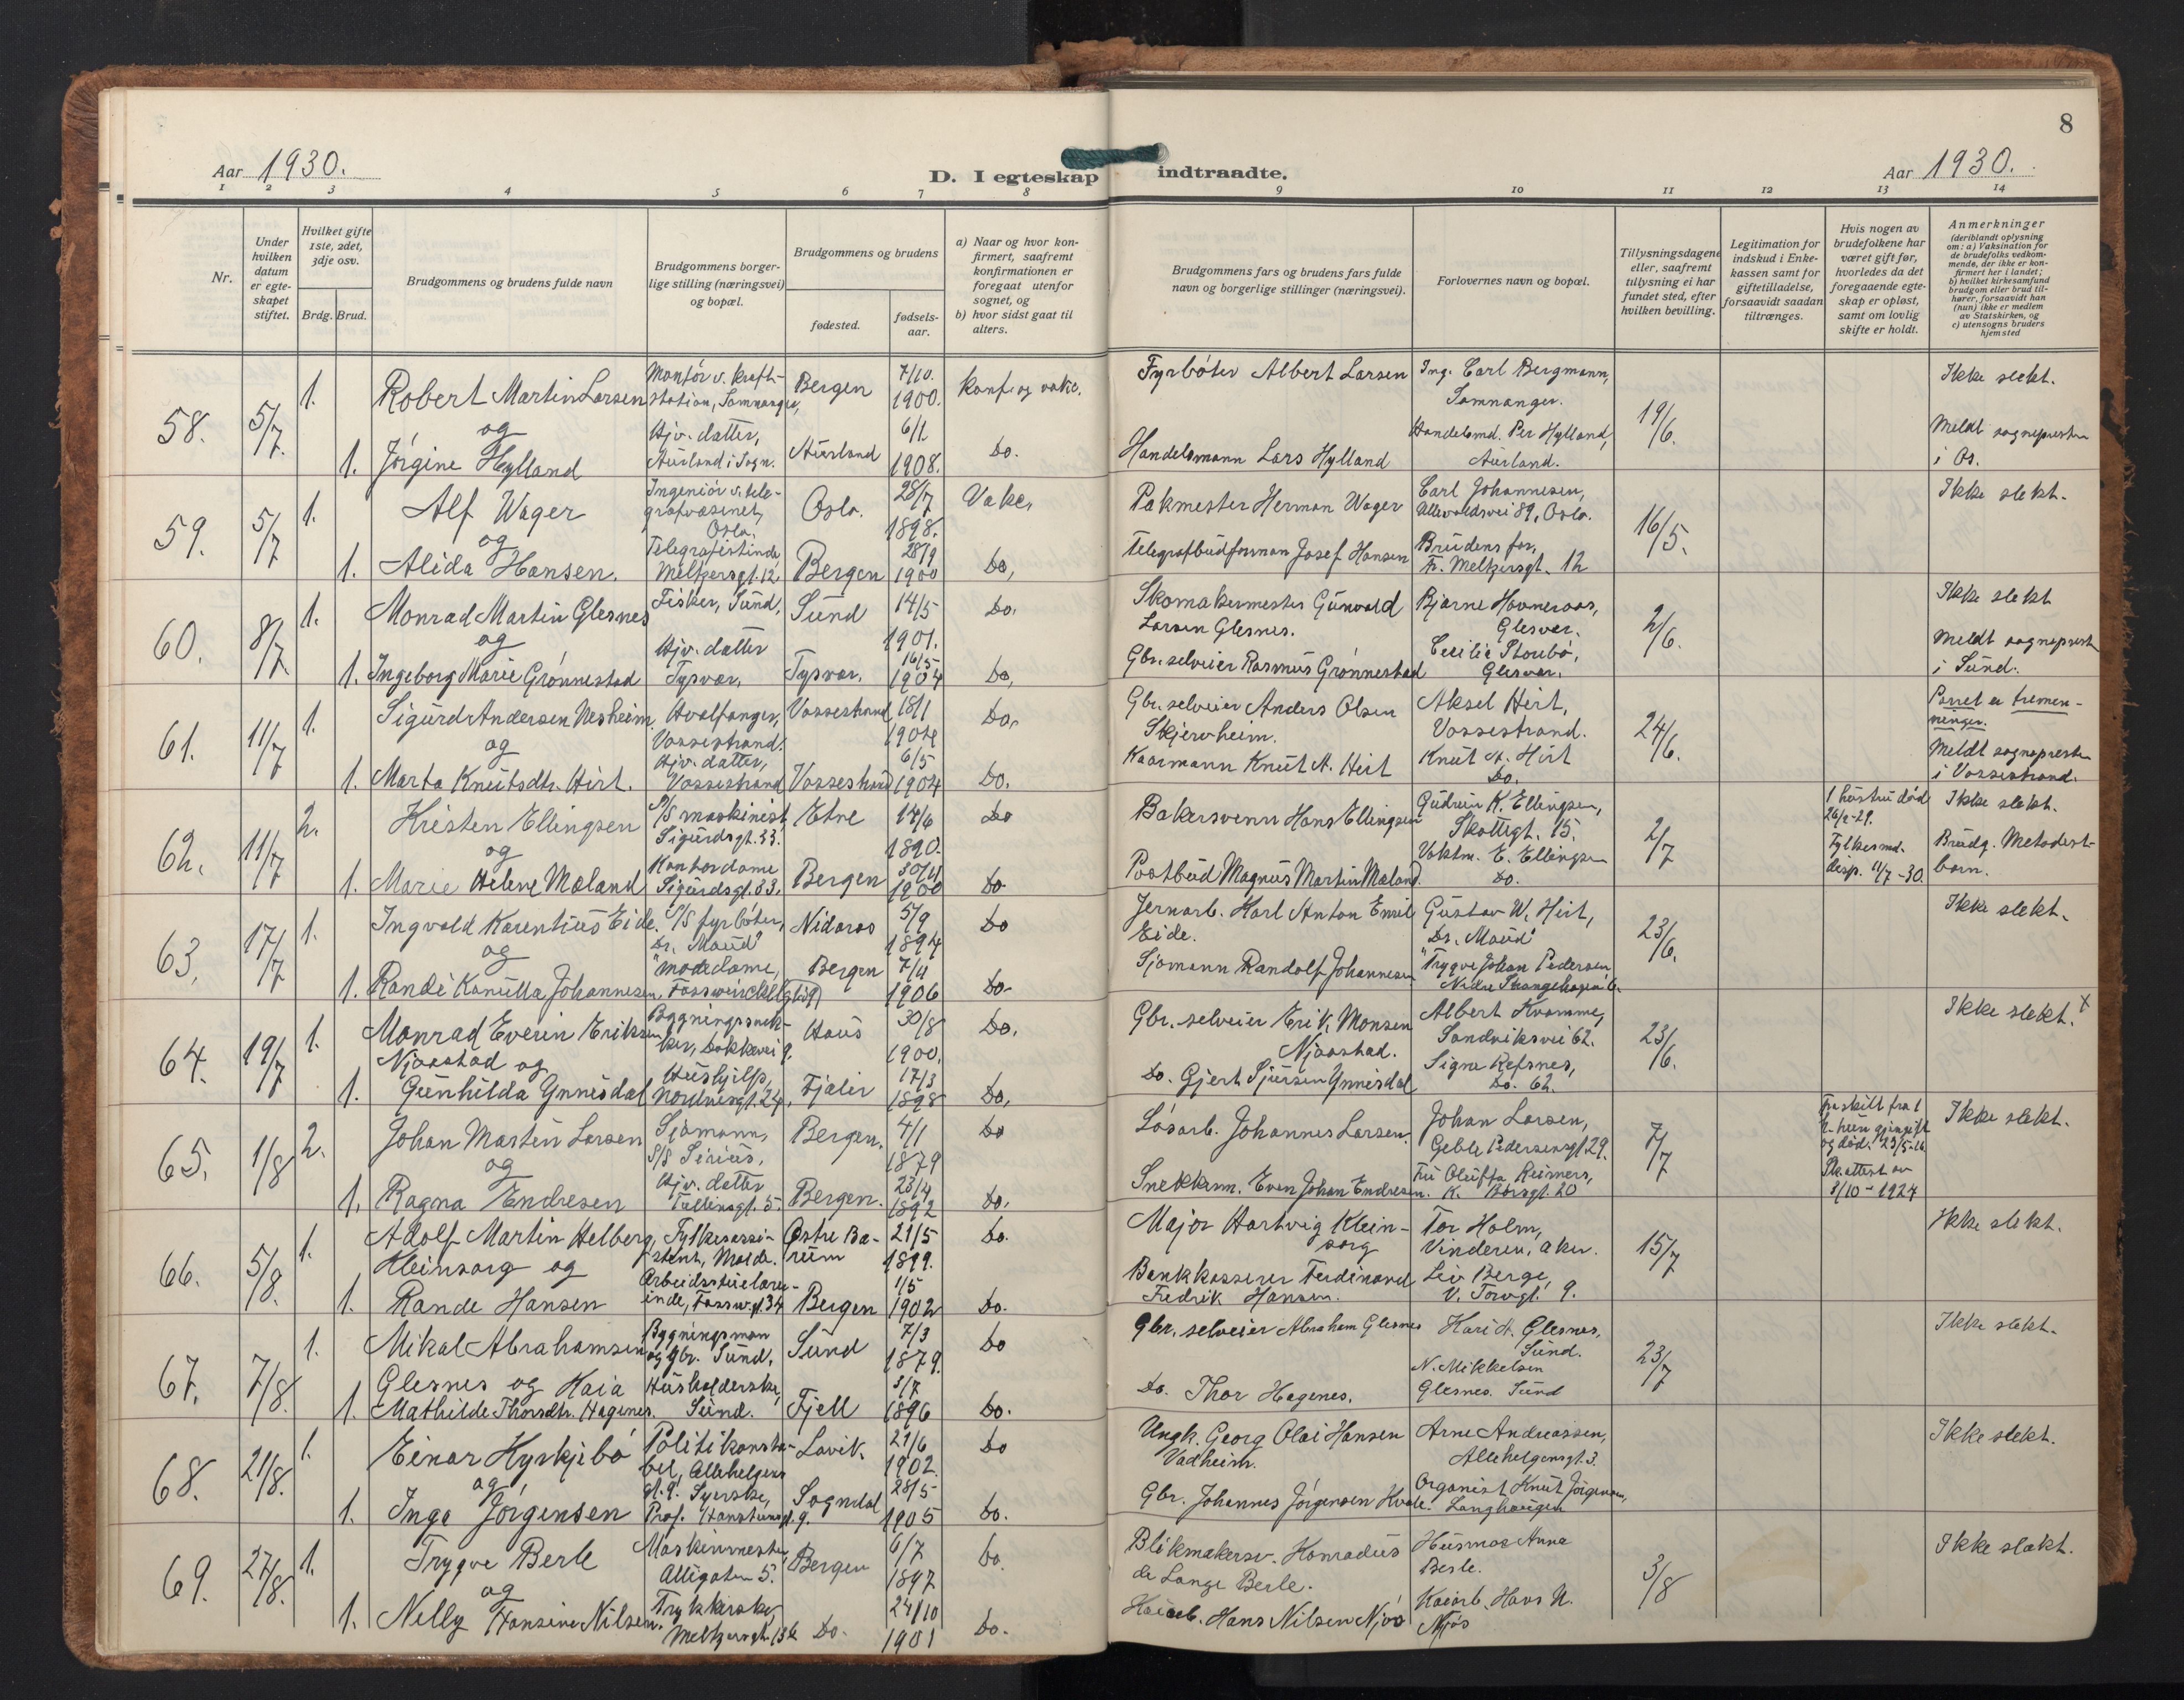 8
Aar 1930.
D. I egteskap indtraadte.
Aar 1930.
1 2 3 4 5 6 7 8 9 10 11 12 13 14
Nr.
Under hvilken datum er egte-skapet stiftet.
Hvilket gifte 1ste, 2det, 3dje osv.
Brdg. Brud.
Brudgommens og brudens fulde navn
Brudgommens borger-lige stilling (næringsvei) og bopæl.
Brudgommens og brudens
fødested.
fødsels-aar.
a) Naar og hvor kon-firmert, saafremt konfirmationen er foregaat utenfor sognet, og
b) hvor sidst gaat til alters.
Brudgommens fars og brudens fars fulde navn og borgerlige stillinger (næringsvei).
Forlovernes navn og bopæl.
Tillysningsdagene eller, saafremt tillysning ei har fundet sted, efter hvilken bevilling.
Legitimation for indskud i Enke-kassen samt for giftetilladelse, forsaavidt saadan tiltrænges.
Hvis nogen av brudefolkene har været gift før, hvorledes da det foregaaende egte-skap er opløst, samt om lovlig skifte er holdt.
Anmerkninger
(deriblandt oplysning om: a) Vaksination for de brudefolks vedkom-mende, der ikke er kon-firmert her i landet; b) hvilket kirkesamfund brudgom eller brud til-hører, forsaavidt han (hun) ikke er medlem av Statskirken, og c) utensogns bruders hjemsted
58. 5/7 1. Robert Martin Larsen Montör v. kraft-station, Samnanger, Bergen 7/10. 1900. Konf. og vakc. Fyrböter Albert Larsen Ing. Carl Bergmann, Samnanger. 19/6. Ikke slekt.
og
1. Jörgine Hylland Hjv. datter, Aurland i Sogn. Aurland 6/1 1908. Do. Handelsmann Lars Hylland Handelsmd. Per Hylland, Aurland. Meldt sognepresten i Os.
59. 5/7 1. Alf Wager Ingeniör v. tele-grafvæsenet, Oslo. Oslo. 28/7 1898. Vakc. Pakmester Herman Wager Carl Johannesen, Ullevoldsvei 89, Oslo. 16/5. Ikke slekt.
og
1. Alida Hansen. Telegrafistinde Meltzersgt. 12, Bergen 28/9 1900 Do, Telegrafbudforman Josef Hansen Brudens far, F. Meltzersgt. 12
60. 8/7. 1. Monrad Martin Glesnes Fisker, Sund, Sund 14/5 1901. Do. Skomakermester Gunvald Larsen Glesnes. Bjarne Hovneraas, Glesvær. 2/6. Ikke slekt
og
1. Ingeborg Marie Grönnestad Hjv. datter Tysvær, Tysvær. 16/5 1904 Do, Gbr. selveier Rasmus Grönnestad Cecilie Storebö, Glesvær. Meldt sogneprest i Sund.
61. 11/7 1. Sigurd Andersen Nesheim Hvalfanger, Vossestrand. Vossestrand 18/1 1904 Do, Gbr. selveier Anders Olsen Skjervheim. Aksel Hirt, Vossestrand. 24/6. Parret er tremen-ninger.
og
1. Marta Knutsdtr. Hirt. Hjv. datter, Vossestrand Vossestrand 6/5 1904 Do. Kaarmann Knut A. Hirt Knut A. Hirt Do. Meldt sognepresten i Vossestrand.
62. 11/7 2. Kristen Ellingsen S/S maskinist Sigurdsgt. 33. Etne 14/6 1890. Do Bakersvenn Hans Ellingsen Gudrun K. Ellingsen, Skottegt. 15. 2/7 1 hustru död 26/2-29. Ikke slekt.
og
1. Marie Helene Mæland Kontordame Sigurdsgt. 33. Bergen 30/11 1900 Do Postbud Magnus Martin Mæland. Vaktm. E. Ellingsen Do. Fylkesmd. disp. 11/7-30. Brudg. Metodist-barn.
63. 17/7 1. Ingvald Karentius Eide. S/S fyrböter, Dr. "Maud" Nidaros 5/9 1894 Do Jernarb. Karl Anton Emil Eide. Gustav W. Hirt, Dr. "Maud" 23/6. Ikke slekt.
og
1. Randi Kamilla Johannesen, modedame, Bergen 7/11 1906 Do Sjömann Randolf Johannesen Trygve Johan Pedersen Nedre Stangehagen 6.
64. 19/7 1. Monrad Everin Eriksen Njaastad og Bygningssnek-ker, Dokkevei 9. Haus 30/8 1900. Do. Gbr. selveier Erik Monsen Njaastad. Albert Kvamme, Sandviksvei 62. 23/6. Ikke slekt. x
1. Gunhilda Ynnesdal Hushjelp, Nordnesgt. 24, Fjaler 17/3 1898 Do, Do. Gjert Sjursen Ynnesdal Signe Refsnes, Do. 62.
65. 1/8 2. Johan Martin Larsen Sjömann, S/S Sirius, Bergen. 4/1 1879 Do Lösarb. Johannes Larsen. Johan Larsen, Geble Pedersensgt. 29. 7/7 Fraskilt fra 1 Ikke slekt.
og
1. Ragna Endresen Hjv. datter Tullinsgt. 5. Bergen. 23/4 1892 Do. Snekkerm. Even Johan Endresen. Fru Oluffa Reimers, K. Børsgt. 20 Sk. attest av 8/10-1927
66. 5/8. 1. Adolf Martin Helberg Kleinsorg og Fylkesassi-stent, Molde. Østre Bæ-rum 21/5 1899. Do. Major Hartvig Klein-sorg Tor Holm, Vinderen, Aker. 15/7 Ikke slekt.
1. Rande Hansen Arbeidsstuelærer-inde, Fossw.gt. 34 Bergen 1/5 1902 Do. Bankkasserer Ferdinand Fredrik Hansen. Leiv Berge, V. Torvgt. 9.
67. 7/8. 1. Mikal Abrahamsen Glesnes og Kaia Bygningsman og gbr. Sund, Sund 7/3 1879. Do Gbr. selveier Abraham Glesnes Kari A. Glesnes, Sund. 23/7 Ikke slekt.
1. Mathilde Thorsdtr. Hagenes. Husholderske, Sund. Fjell 3/7 1896 Do. Do. Thor Hagenes. N. Mikkelsen Glesnes. Sund
68. 21/8. 1. Einar Hyrkjebö Politikonsta-bel, Allehelgens gt. 9. Lavik. 21/6 1902. Do Ungk. Georg Olai Hansen Vadheim. Arne Andreassen, Allehelgensgt. 3. Ikke slekt.
og
1. Inga Jörgensen Syerske, Prof. Hansteensgt. 9. Sogndal 28/5 1905 Do. Gbr. Johannes Jörgensen Kvåle. Organist Knut Jörgensen, Langhaugen
69. 27/8. 1. Trygve Berle Maskinmester Alligaten 5. Bergen 6/7 1897 Do. Blikmakersv. Konradus de Lange Berle. Husmor Anna Berle. 3/8 Ikke slekt.
og
1. Nelly Hansine Nilsen. Trykkerske, Meltzersgt. Do. 24/10 1901 Do. Kaiarb. Hans Nilsen Njös Kaiarb. Hans N. Njös